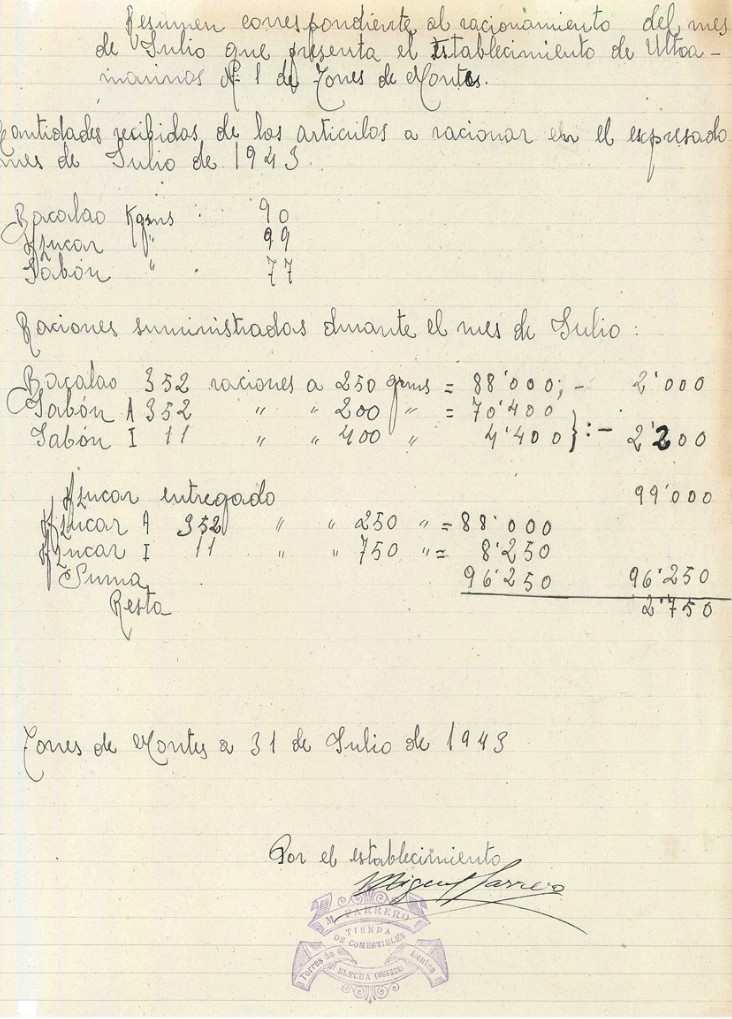 Resumen correspondiente al racionamiento del mes
de Julio que presenta el Establecimiento de Ultra-
marinos Nº 1 de Torres de Montes.
Cantidades recibidas de los articulos a racionar en el expresado
mes de Julio de 1943.
Bacalao Kgrms : 90
Azucar " 99
Jabón " . 77
Raciones suministradas durante el mes de Julio :
Bacalao 352 raciones a 250 grms = 88'000; - 2'000
Jabón A 352 " " 200 " = 70'400
Jabón I 11 " " 400 " 4'400 } : - 2'200
Azucar entregado 99'000
Azucar A 352 " " 250 " = 88'000
Azucar I 11 " " 750 " = 8'250
Suma 96'250 96'250
Resta 2'750
Torres de Montes a 31 de Julio de 1943
Por el establecimiento
Miguel Parrero
M. PARRERO
TIENDA
DE COMESTIBLES
Torres de Montes
(HUESCA)